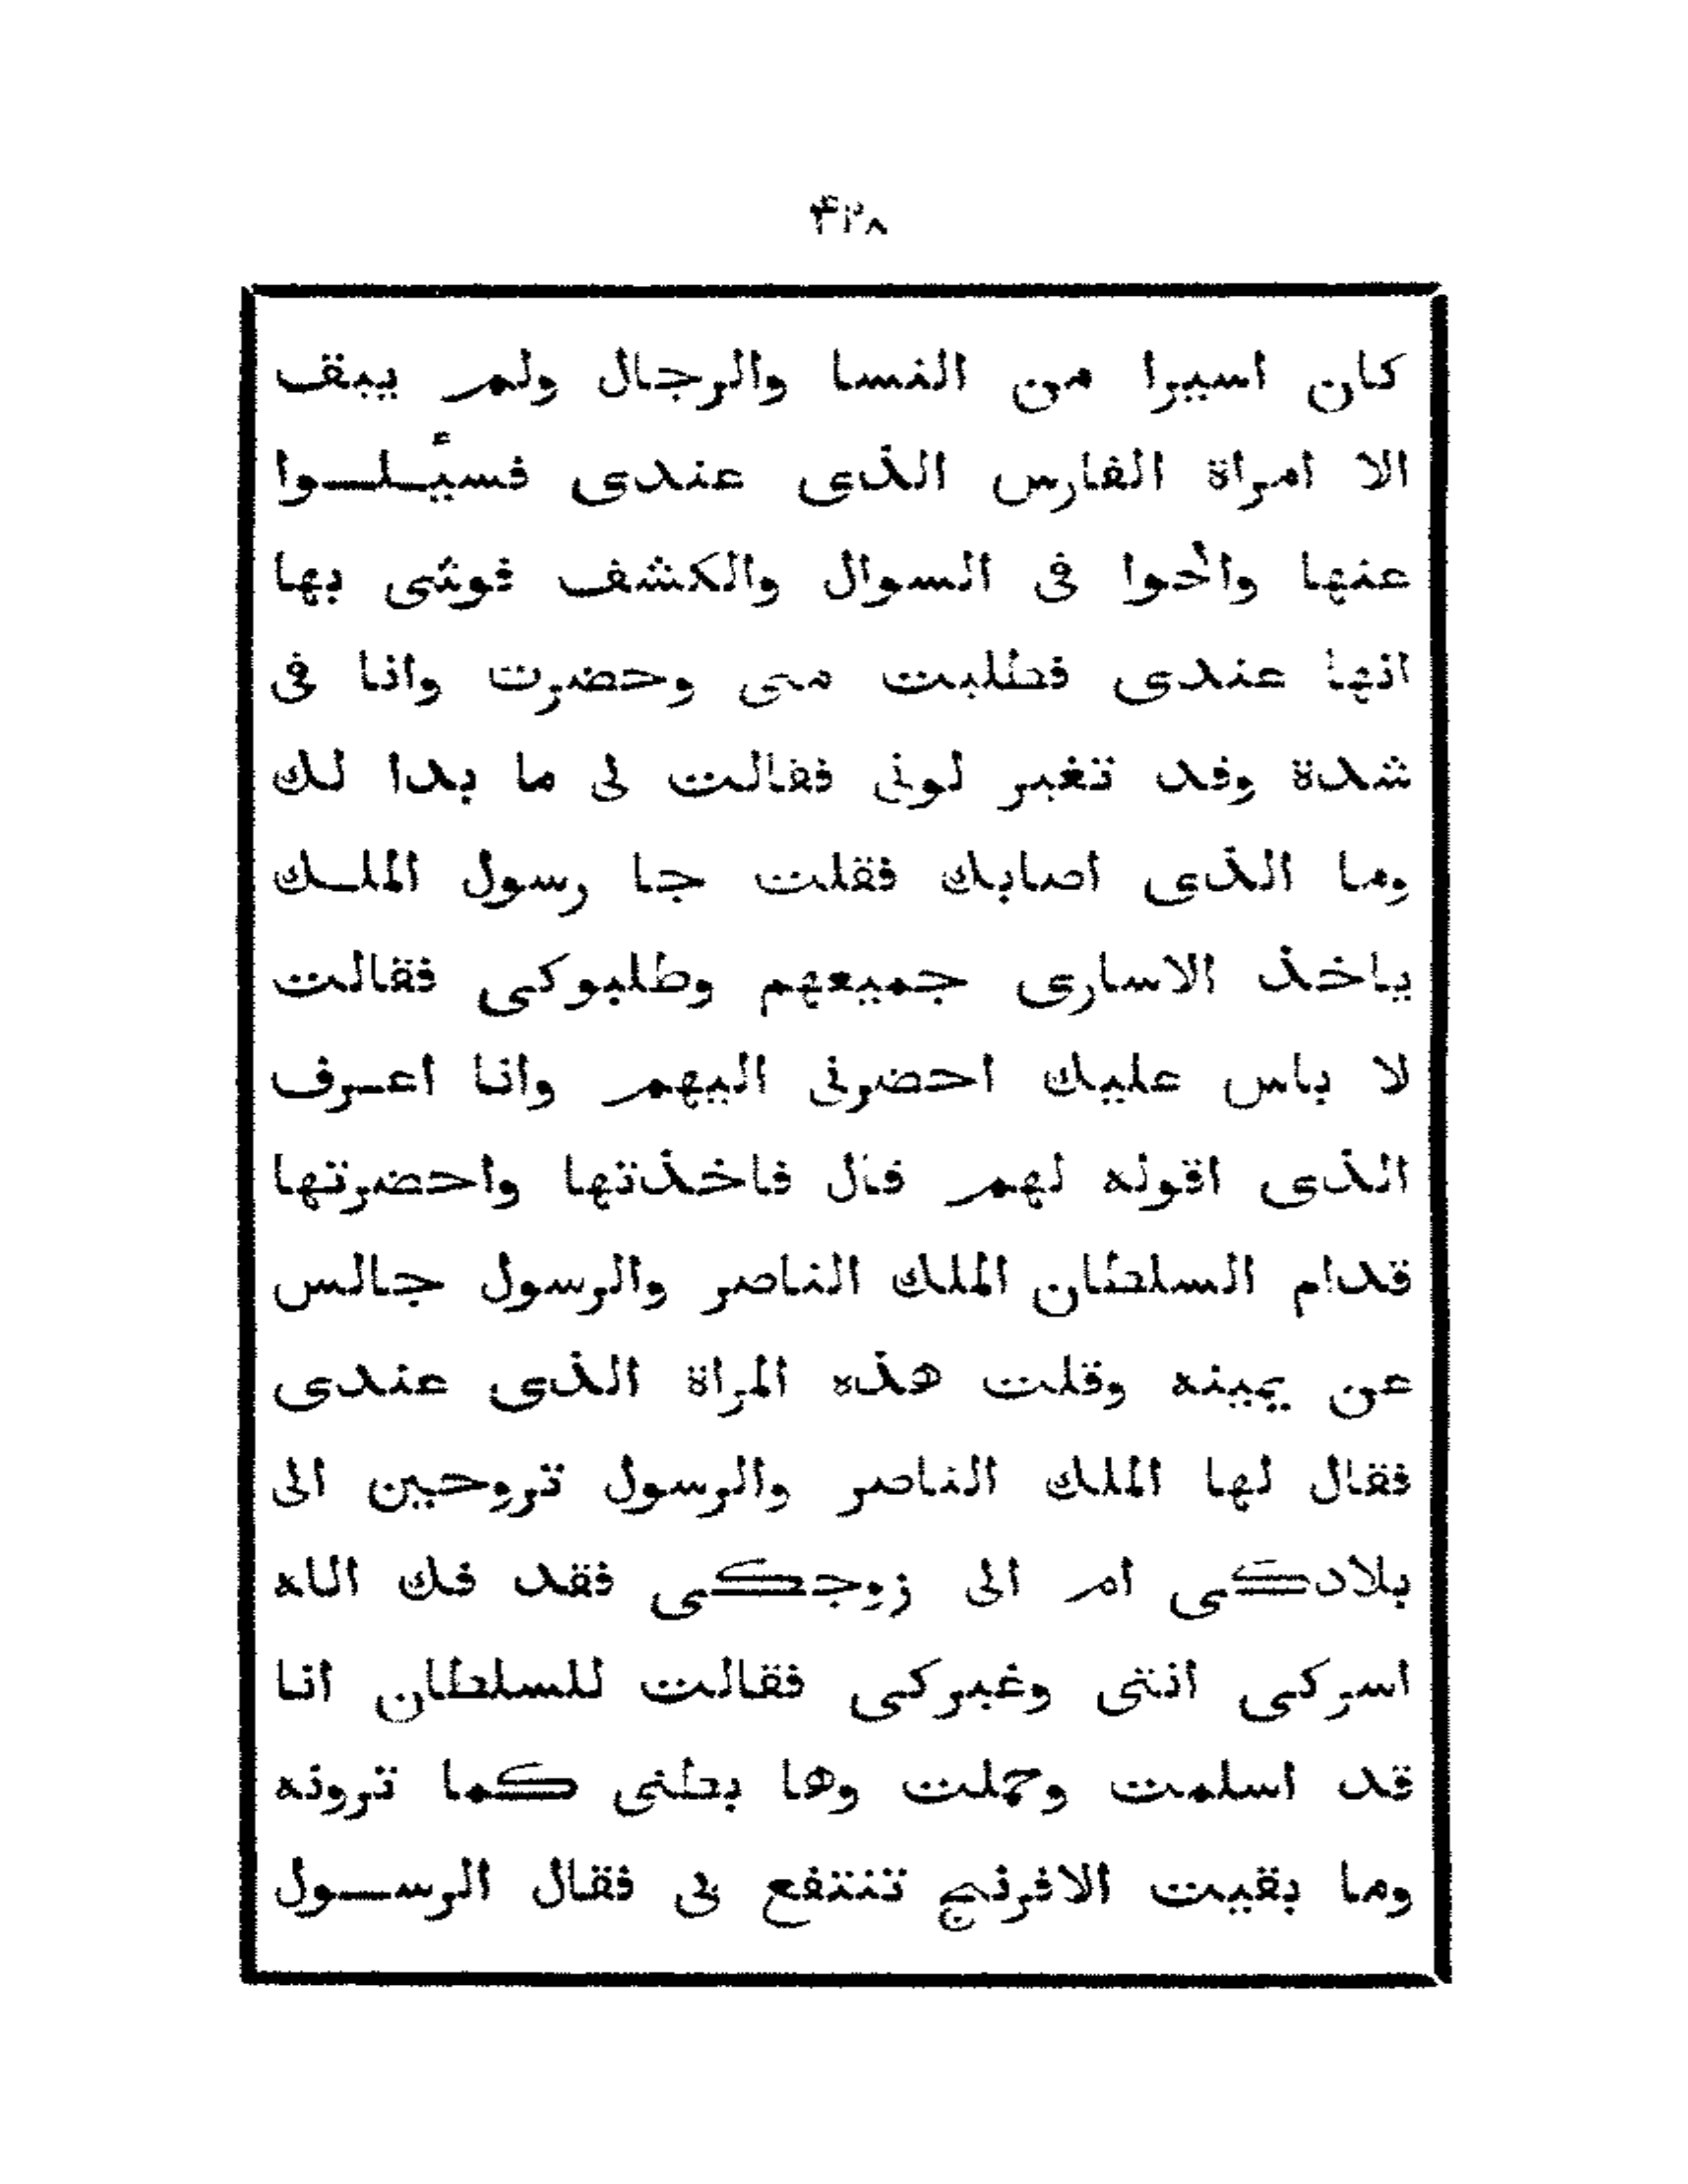 ۴۲۸
كان اسيرا من النسا والرجال ولم يبق
الا امراة الفارس الذى عندى فسئلوا
عنها والحوا فى السوال والكشف فوشى بها
انها عندى فطلبت منى وحضرت وانا فى
شدة وقد تغير لونى فقالت لى ما بدا لك
وما الذى اصابك فقلت جا رسول الملك
ياخذ الاسارى جميعهم وطلبوكى فقالت
لا باس عليك احضرنى اليهم وانا اعرف
الذى اقوله لهم قال فاخذتها واحضرتها
قدام السلطان الملك الناصر والرسول جالس
عن يمينه وقلت هذه المراة الذى عندى
فقال لها الملك الناصر والرسول تروحين الى
بلادكى ام الى زوجكى فقد فك الله
اسركى انتى وغيركى فقالت للسلطان انا
قد اسلمت وحملت وها بطنى كما ترونه
وما بقيت الافرنج تنتفع بى فقال الرسول